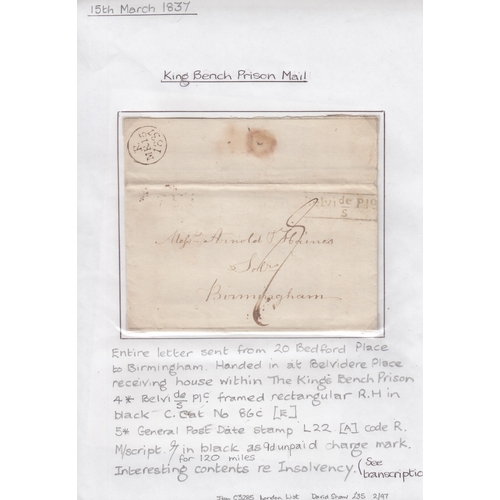 15th March 1837
King Bench Prison Mail
1837
Belvide Plc
S
Messrs Arnold & Haines
Solrs
Birmingham
9
Entire letter sent from 20 Bedford Place
to Birmingham. Handed in at Belvidere Place
receiving house within The King's Bench Prison
4* Belvide Plc framed rectangular R.H in
S
black C. Cat No 86c [E]
5* General Post Date stamp L22 [A] code R.
M/script. 9/ in black as 9d unpaid charge mark.
for 120 miles
Interesting contents re Insolvency. (See
transcriptio
Item C3285 London List David Shaw £35 2/97